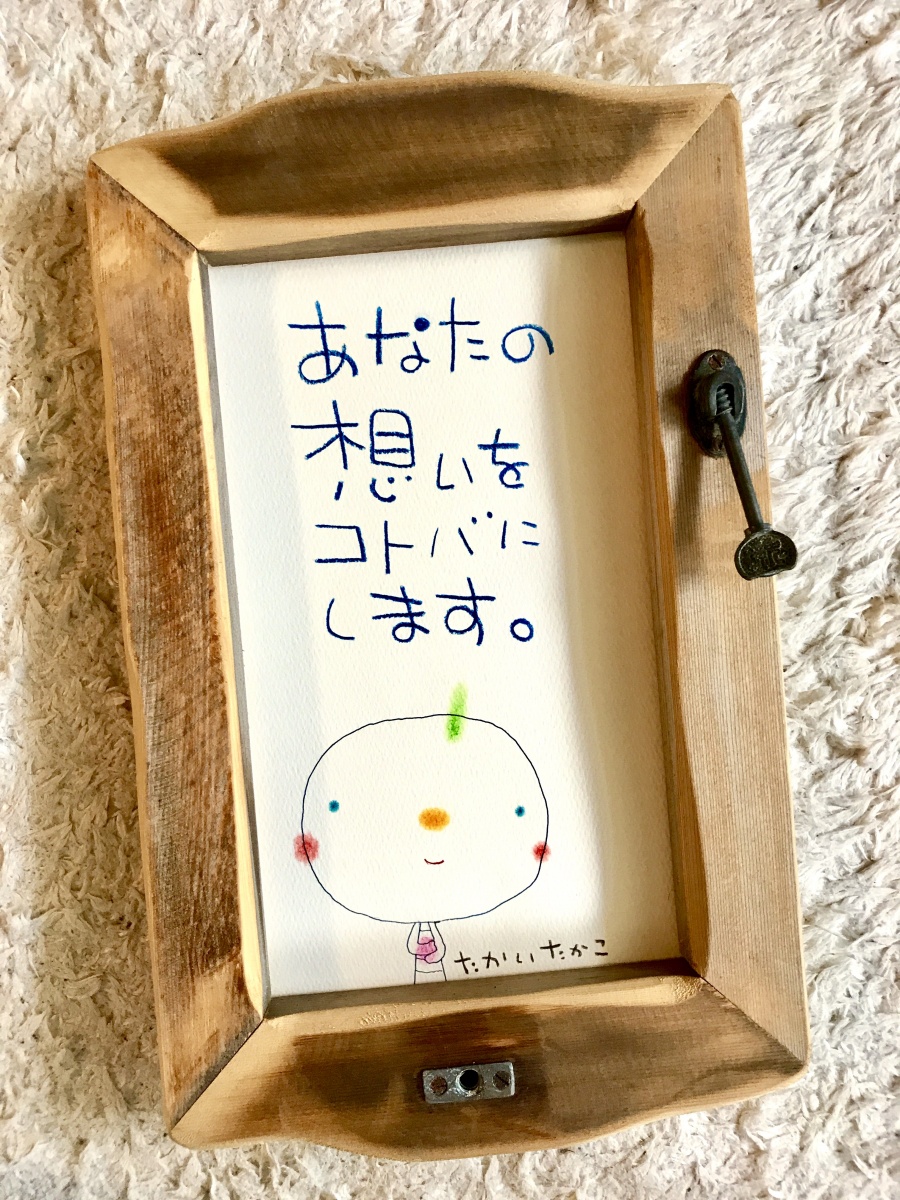 あなたの
想いを
コトバに
します。
たかいたかこ